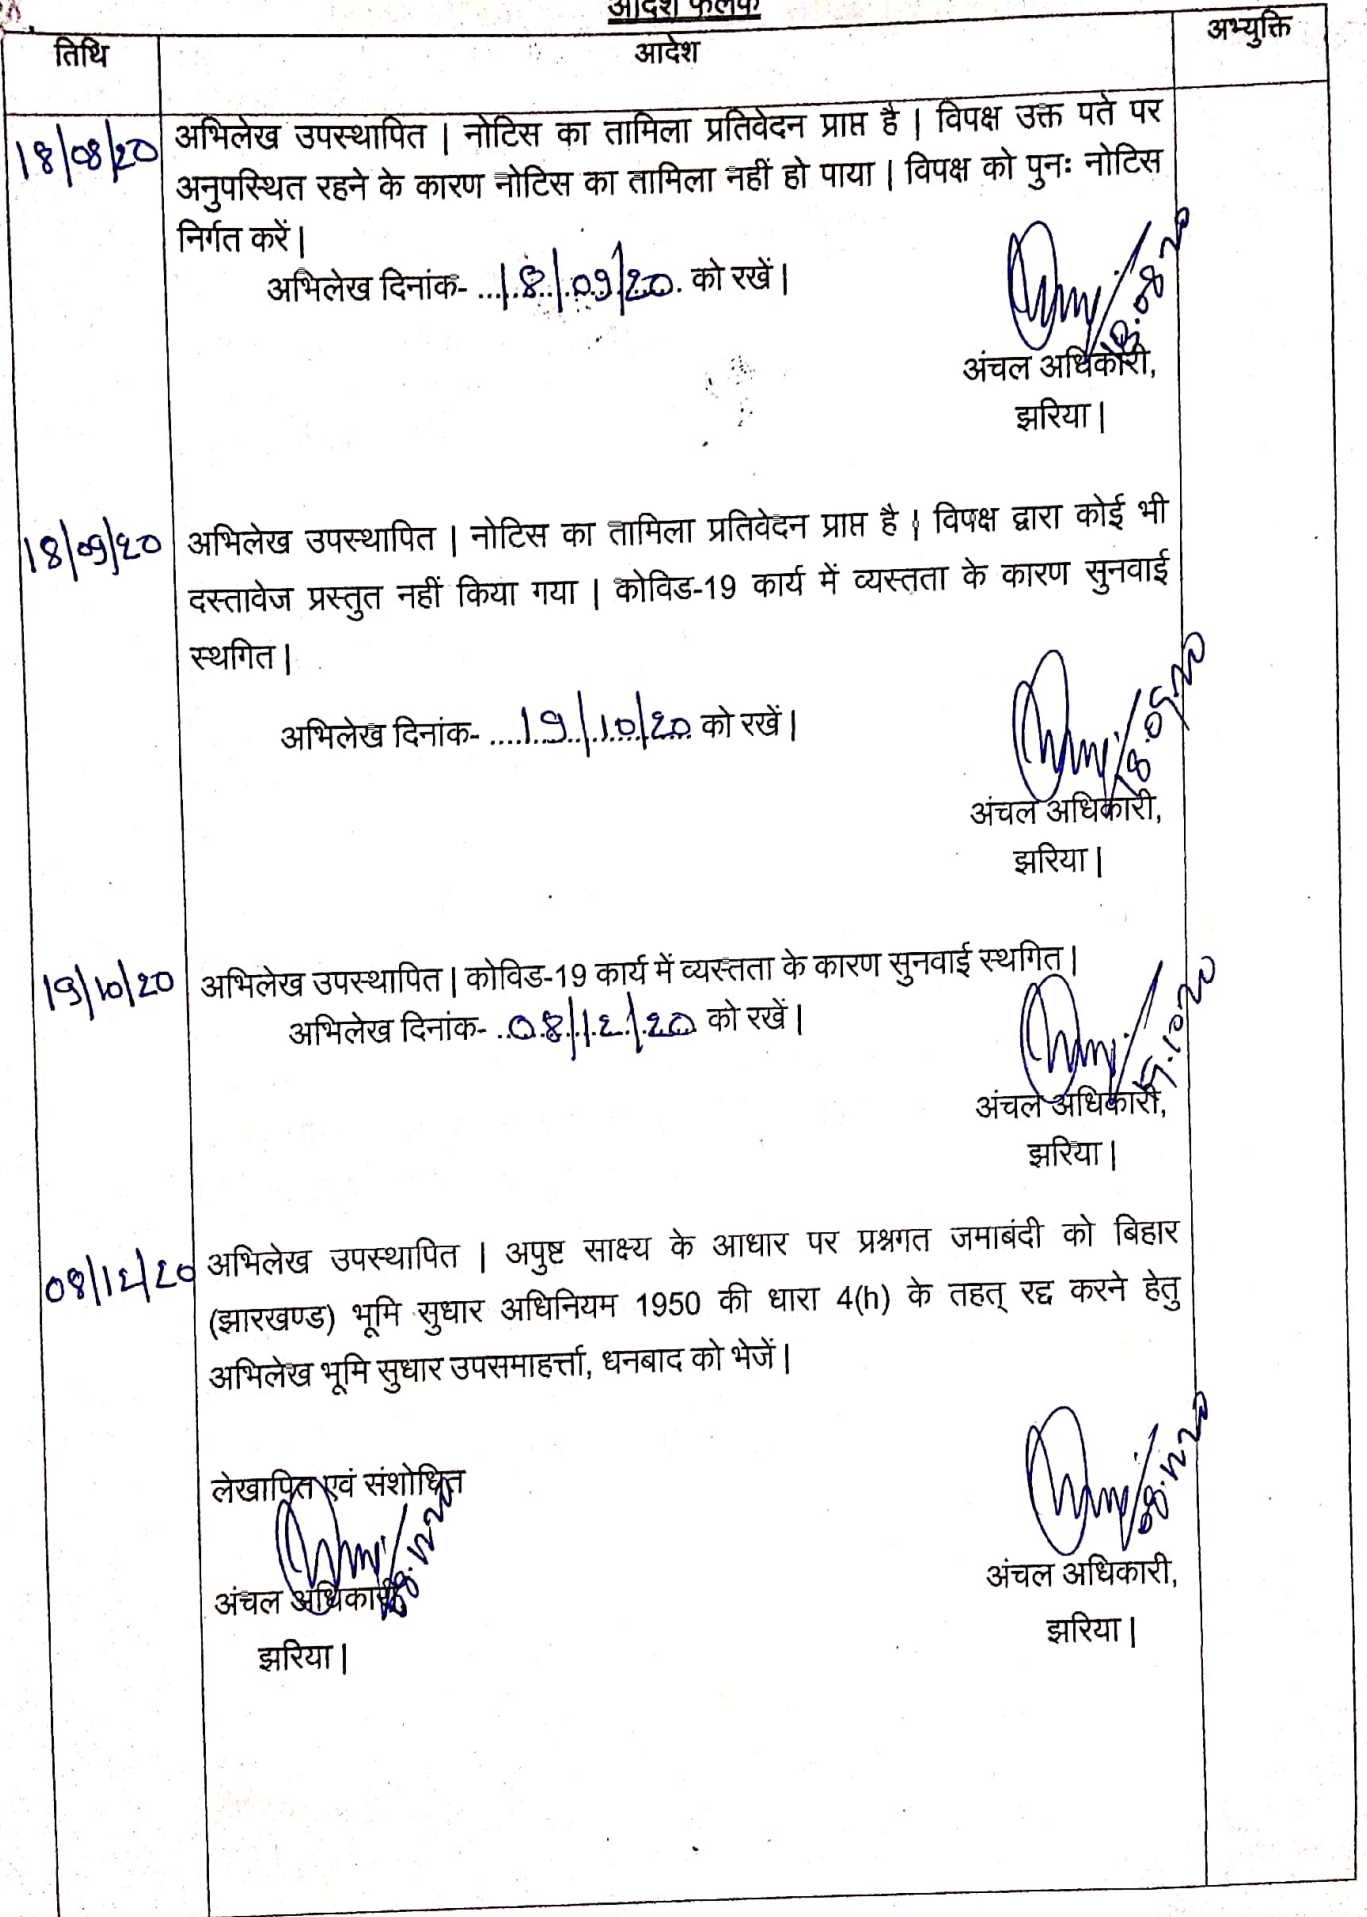 आदेश फलक
तिथि आदेश अभ्युक्ति
18/08/20 अभिलेख उपस्थापित | नोटिस का तामिला प्रतिवेदन प्राप्त है | विपक्ष उक्त पते पर
अनुपस्थित रहने के कारण नोटिस का तामिला नहीं हो पाया | विपक्ष को पुनः नोटिस
निर्गत करें |
अभिलेख दिनांक- 18/09/20 को रखें |
18.08.20
अंचल अधिकारी,
झरिया |
18/09/20 अभिलेख उपस्थापित | नोटिस का तामिला प्रतिवेदन प्राप्त है | विपक्ष द्वारा कोई भी
दस्तावेज प्रस्तुत नहीं किया गया | कोविड-19 कार्य में व्यस्तता के कारण सुनवाई
स्थगित |
अभिलेख दिनांक- ....19/10/20 को रखें |
18.09.20
अंचल अधिकारी,
झरिया |
19/10/20 अभिलेख उपस्थापित | कोविड-19 कार्य में व्यस्तता के कारण सुनवाई स्थगित |
अभिलेख दिनांक- ..08/12/20 को रखें |
19.10.20
अंचल अधिकारी,
झरिया |
08/12/20 अभिलेख उपस्थापित | अपुष्ट साक्ष्य के आधार पर प्रश्नगत जमाबंदी को बिहार
(झारखण्ड) भूमि सुधार अधिनियम 1950 की धारा 4(h) के तहत् रद्द करने हेतु
अभिलेख भूमि सुधार उपसमाहर्त्ता, धनबाद को भेजें |
लेखापित एवं संशोधित
08.12.20
अंचल अधिकारी,
झरिया |
08.12.20
अंचल अधिकारी,
झरिया |